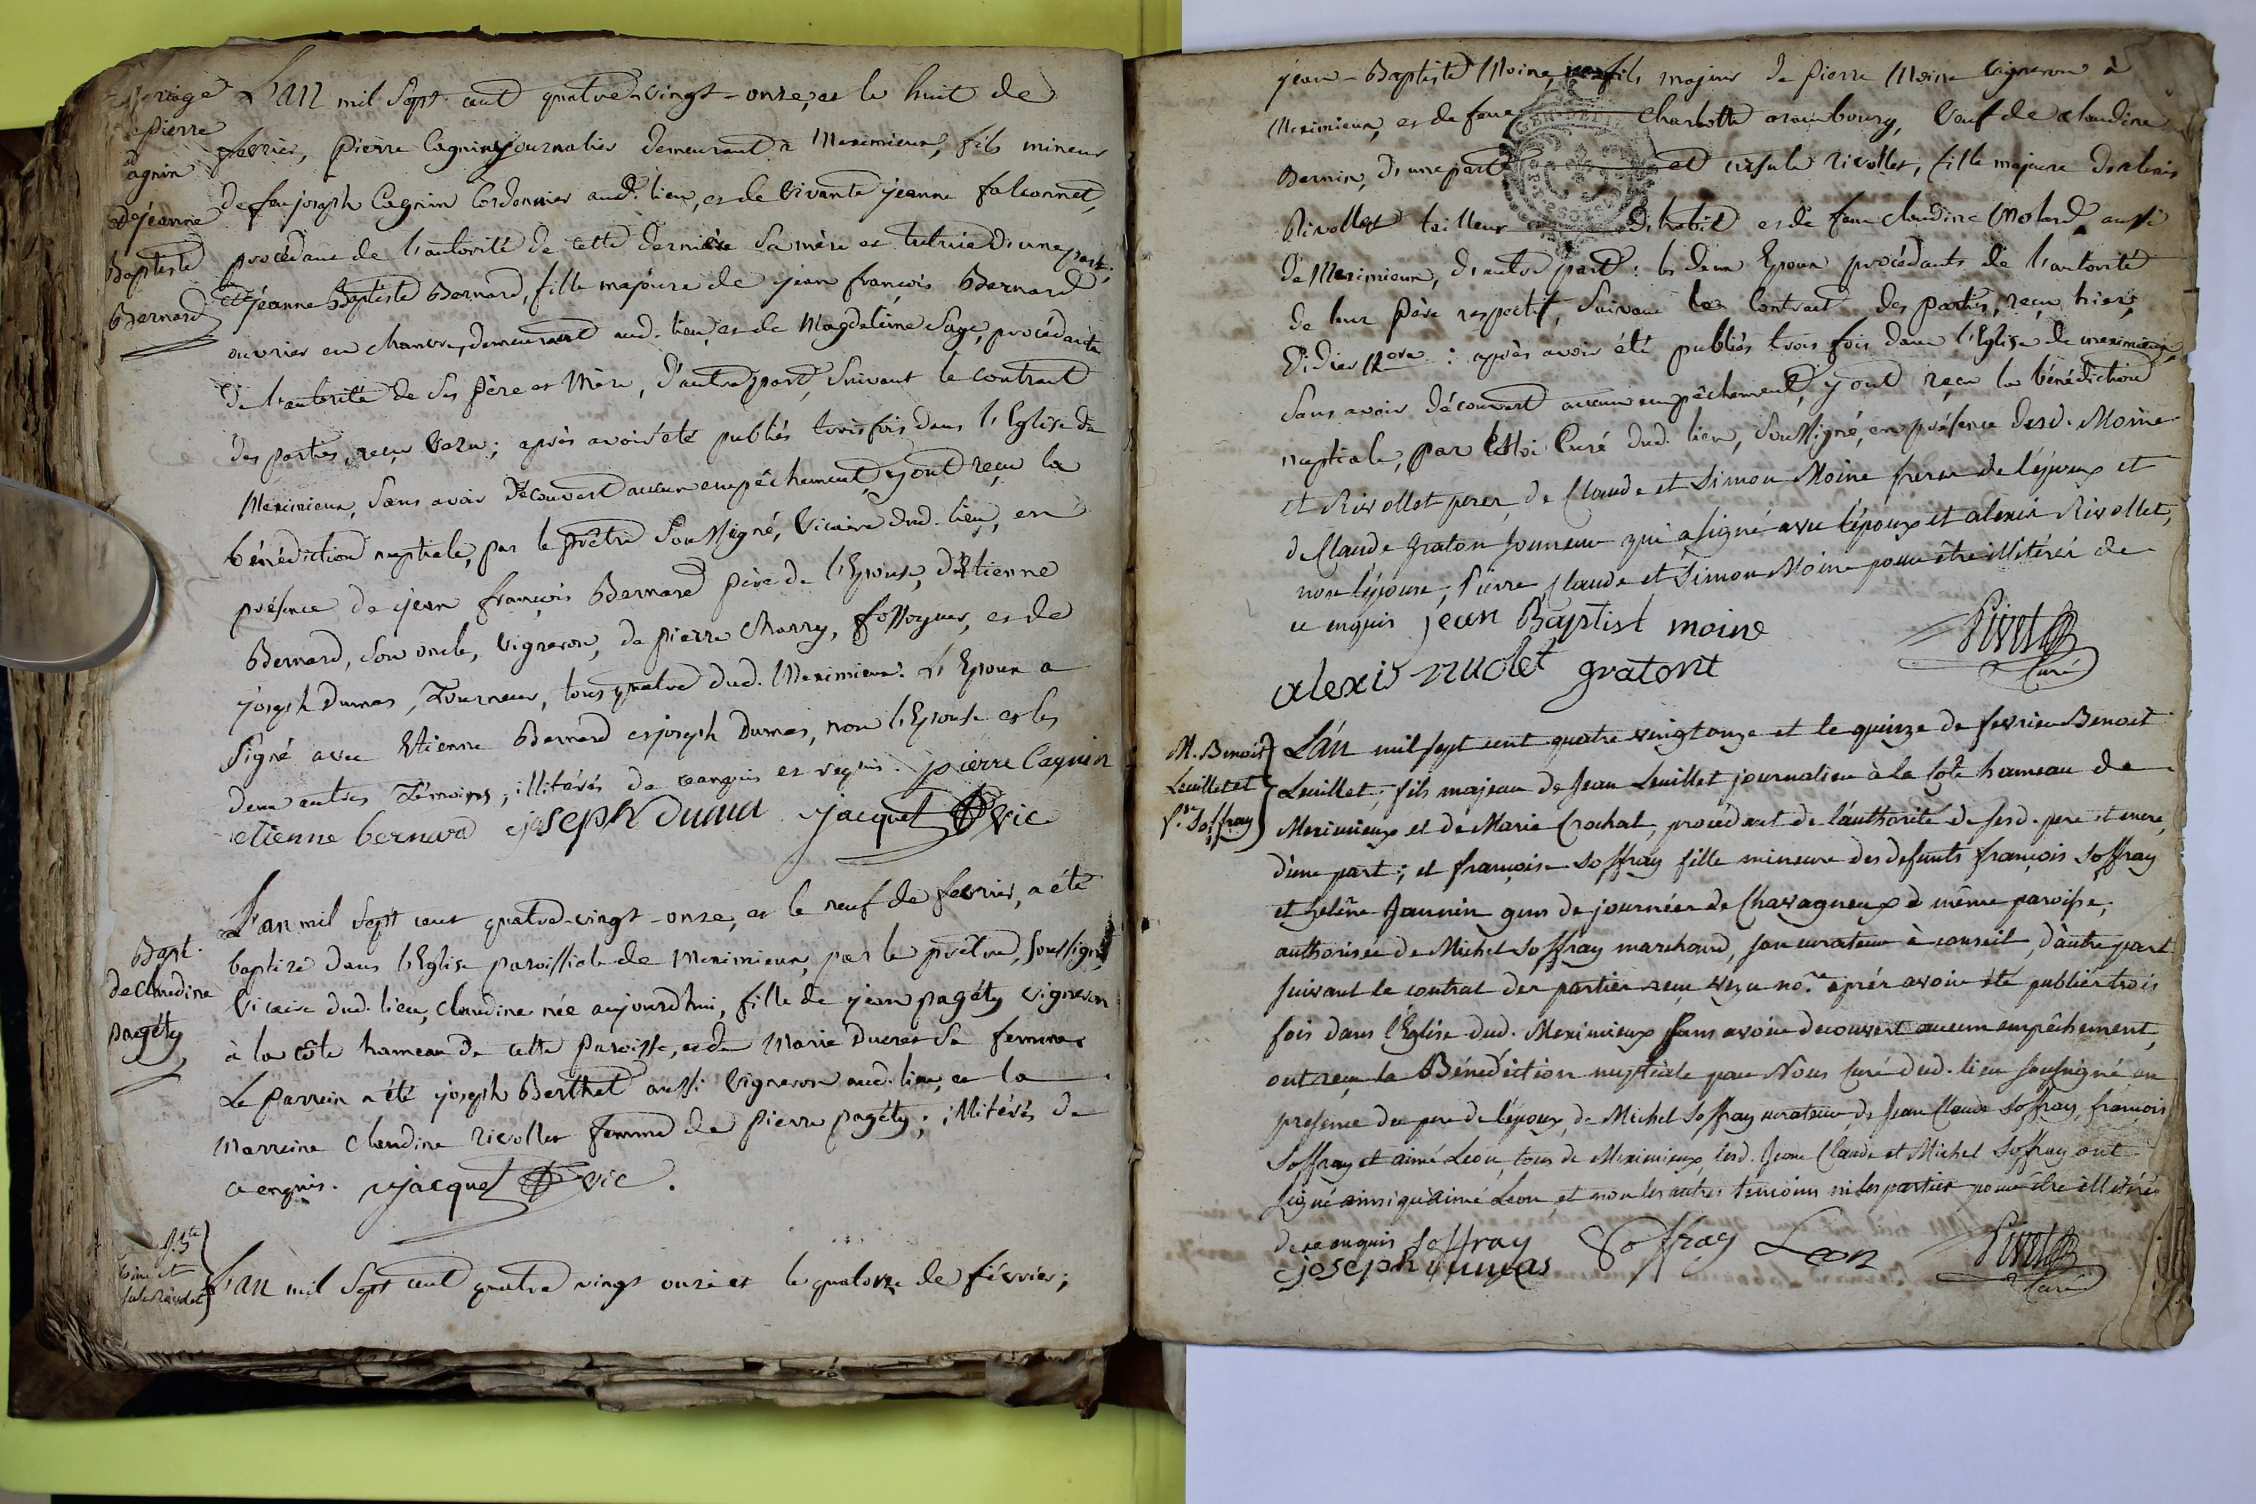 Mariage
Pierre
Cagnin
de jeanne
Baptiste
Bernard
L'an mil sept cent quatre-vingt-onze, et le huit de
fevrier, pierre Cagnin journalier demeurant à Meximieux, fils mineur
de feu joseph Cagnin Cordonnier aud. lieu, et de vivante jeanne falconnet,
procédant de l'autorité de cette dernière sa mère et tutrice d'une part;
et jeanne Baptiste Bernard, fille majeure de jean françois Bernard
ouvrier en chanvre, demeurant aud. lieu, et de Magdeleine Sage, procédante
de l'autorité de ses père et Mère, d'autre part, suivant le contract
des parties, reçu Vezu; après avoir été publiés trois fois dans l'Eglise de
Meximieux, sans avoir découvert aucun empêchement, y ont reçu la
bénédiction nuptiale, par le prêtre soussigné, Vicaire dud. lieu, en
présence de jean françois Bernard père de l'Epouse, d'Etienne
Bernard, son oncle, vigneron, de pierre Charry, fossoyeur, et de
joseph Dumas, Tourneur, tous quatre dud. Meximieux. L'Epoux a
signé avec Etienne Bernard et joseph Dumas, non l'Epouse et les
deux autres Témoins, illitérés de ce enquis et requis. pierre Cagnin
etienne bernard joseph dumas jacquet vic
Bapt.
de Claudine
pagéty
L'an mil sept cent quatre-vingt-onze, et le neuf de fevrier, a été
baptisé dans l'Eglise paroissiale de Meximieux, par le prêtre, soussigné
Vicaire dud. lieu, Claudine née aujourd'hui, fille de jean pagéty vigneron
à la côte hameau de cette paroisse, et de Marie Ducret sa femme
Le parrein a été joseph Berthet aussi vigneron aud. lieu, et la
Marreine Claudine Rivollet femme de Pierre pagéty; illitérés de
ce enquis. jacquet vic.
J. Bte
L'an mil sept cent quatre vingt onze et le quatorze de février;
jean-Baptiste Moine, fils majeur de Pierre Moine vigneron à
Meximieux, et de feue Charlotte arambourg, Veuf de claudine
Bernin, d'une part et ursule rivollet, fille majeure d'alexis
Rivollet tailleur d'habit et de feue claudine Molard aussi
de Meximieux, d'autre part: les deux Epoux procédants de l'autorité
de leur Père respectif, suivant le Contract des parties, reçu hier,
Didier Nore: après avoir été publiés trois fois dans l'Eglise de meximieux
sans avoir découvert aucun empêchement, y ont reçu la bénédiction
nuptiale, par Moi Curé dud. lieu, soussigné, en présence desd. Moine
et Rivollet peres, de Claude et Simon Moine freres de l'époux et
de Claude Graton Tourneur qui a signé avec l'époux et alexis Rivollet,
non l'épouse, Pierre, Claude et Simon Moine pour être illitérés de
ce enquis jean Baptist moine
alexis rivolet gratont Pivet
Curé
M. Benoit
Leuillet et
Fse Soffray
L'an mil sept cent quatre vingt onze et le quinze de fevrier Benoit
Leuillet, fils majeur de Jean Leuillet journalier à la Côte hameau de
Meximieux et de Marie Crochat, procédant de l'authorité de sesd. pere et mere,
d'une part; et françoise Soffray fille mineure des defunts françois Soffray
et helêne Jannin gens de journées de Chavagneux de même paroisse,
authorisée de Michel Soffray marchand, son curateur à conseil, d'autre part
suivant le contrat des parties reçu Vezu nore. après avoir été publiés trois
fois dans l'Eglise dud. Meximieux sans avoir decouvert aucun empêchement,
ont reçu la Bénédiction nuptiale par Nous Curé dud. lieu soussigné en
presence du pere de l'époux, de Michel Soffray curateur, de Jean Claude Soffray, françois
Soffray et aimé Leon, tous de Meximieux, lesd. Jean Claude et Michel Soffray ont
signé ainsi qu'aimé Leon, et non les autres temoins ni les parties pour être illitérés
de ce enquis Soffray Soffray Leon Pivet
joseph dumas Curé